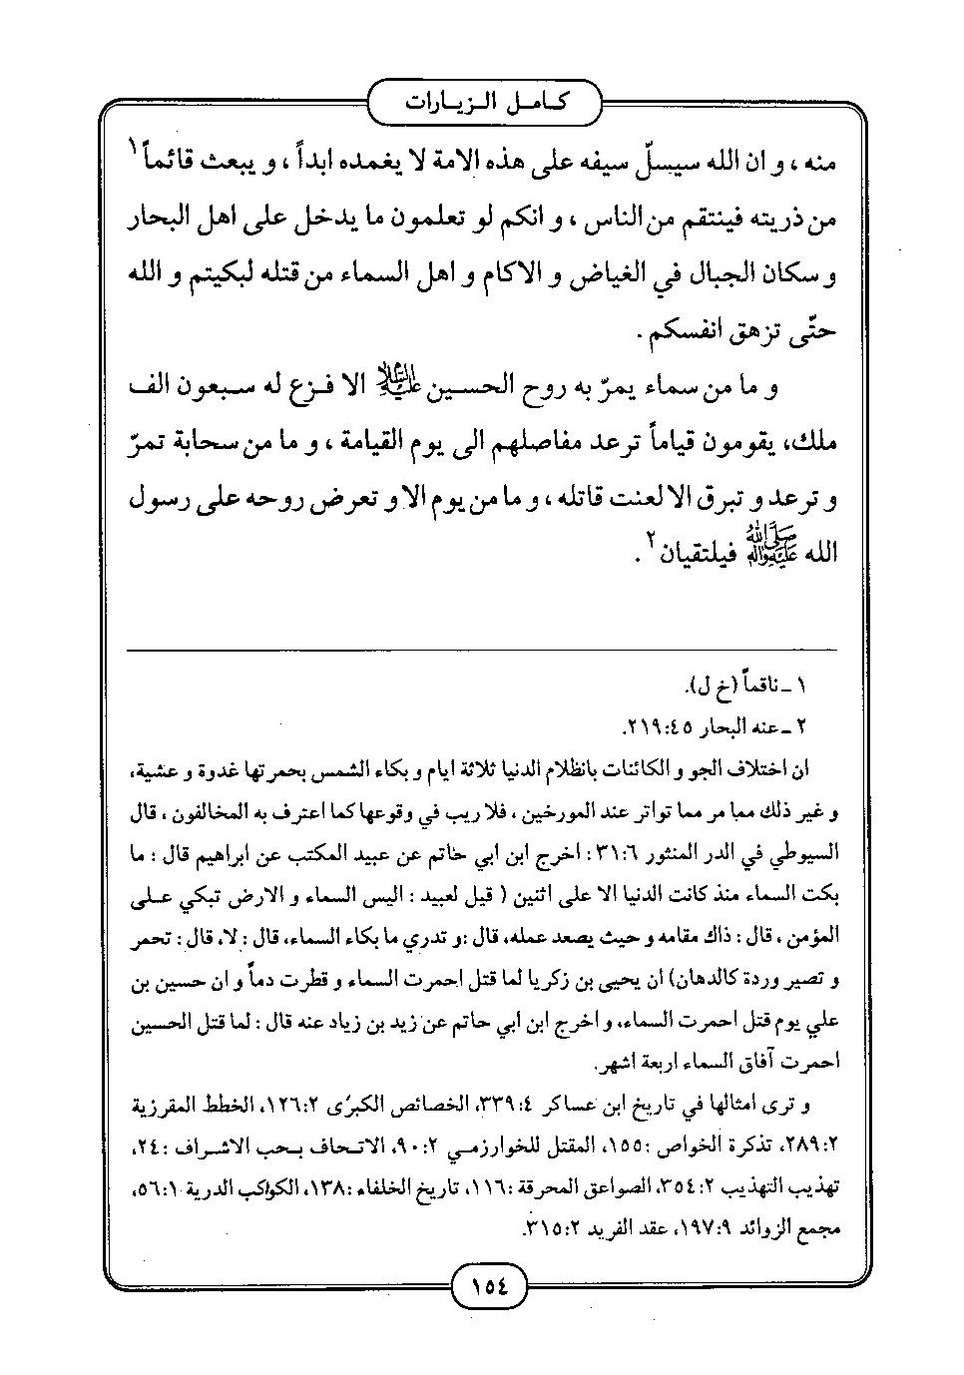 كـامـل الـزيـارات
منه ، و ان الله سيسلّ سيفه على هذه الامة لا يغمده ابداً ، و يبعث قائماً١
من ذريته فينتقم من الناس ، و انكم لو تعلمون ما يدخل على اهل البحار
و سكان الجبال في الغياض و الاكام و اهل السماء من قتله لبكيتم و الله
حتّى تزهق انفسكم .
و ما من سماء يمرّ به روح الحسين عليه السلام الا فزع له سبعون الف
ملك، يقومون قياماً ترعد مفاصلهم الى يوم القيامة ، و ما من سحابة تمرّ
و ترعد و تبرق الا لعنت قاتله ، و ما من يوم الا و تعرض روحه على رسول
الله صلى الله عليه وآله فيلتقيان٢ .
١ ـ ناقماً (خ ل).
٢ ـ عنه البحار ٤٥:٢١٩.
ان اختلاف الجو و الكائنات بانظلام الدنيا ثلاثة ايام و بكاء الشمس بحمرتها غدوة و عشية،
و غير ذلك مما مر مما تواتر عند المورخين ، فلا ريب في وقوعها كما اعترف به المخالفون ، قال
السيوطي في الدر المنثور ٦:٣١ : اخرج ابن ابي حاتم عن عبيد المكتب عن ابراهيم قال : ما
بكت السماء منذ كانت الدنيا الا على اثنين ( قيل لعبيد : اليس السماء و الارض تبكي عـلـى
المؤمن ، قال : ذاك مقامه و حيث يصعد عمله، قال :و تدري ما بكاء السماء، قال : لا، قال : تحمر
و تصير وردة كالدهان) ان يحيى بن زكريا لما قتل احمرت السماء و قطرت دماً و ان حسين بن
علي يوم قتل احمرت السماء، و اخرج ابن ابي حاتم عن زيد بن زياد عنه قال : لما قتل الحسين
احمرت آفاق السماء اربعة اشهر.
و ترى امثالها في تاريخ ابن عساكر ٤:٣٣٩، الخصائص الكبرى ٢:١٢٦، الخطط المقرزية
٢:٢٨٩، تذكرة الخواص :١٥٥، المقتل للخوارزمي ٢:٩٠، الاتـحاف بـحب الاشـراف :٢٤،
تهذيب التهذيب ٢:٣٥٤، الصواعق المحرقة :١١٦، تاريخ الخلفاء :١٣٨، الكواكب الدرية ١:٥٦،
مجمع الزوائد ٩:١٩٧، عقد الفريد ٢:٣١٥.
١٥٤